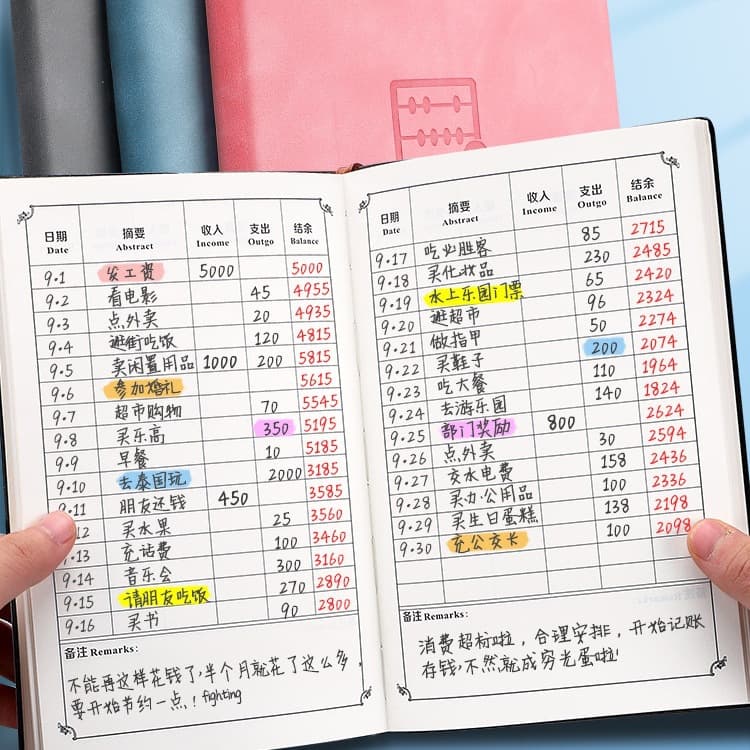 日期 摘要 收入 支出 结余
Date Abstract Income Outgo Balance
9.1 发工资 5000 5000
9.2 看电影 45 4955
9.3 点外卖 20 4935
9.4 逛街吃饭 120 4815
9.5 卖闲置用品 1000 200 5815
9.6 参加婚礼 5615
9.7 超市购物 70 5545
9.8 买乐高 350 5195
9.9 早餐 10 5185
9.10 去泰国玩 2000 3185
9.11 朋友还钱 450 3585
12 买水果 25 3560
.13 充话费 100 3460
9.14 音乐会 300 3160
9.15 请朋友吃饭 270 2890
9.16 买书 90 2800
备注 Remarks:
不能再这样花钱了,半个月就花了这么多,
要开始节约一点!fighting
日期 摘要 收入 支出 结余
Date Abstract Income Outgo Balance
9.17 吃必胜客 85 2715
9.18 买化妆品 230 2485
9.19 水上乐园门票 65 2420
9.20 逛超市 96 2324
9.21 做指甲 50 2274
9.22 买鞋子 200 2074
9.23 吃大餐 110 1964
9.24 去游乐园 140 1824
9.25 部门奖励 800 2624
9.26 点外卖 30 2594
9.27 交水电费 158 2436
9.28 买办公用品 100 2336
9.29 买生日蛋糕 138 2198
9.30 充公交卡 100 2098
备注 Remarks:
消费超标啦,合理安排,开始记账
存钱,不然就成穷光蛋啦!